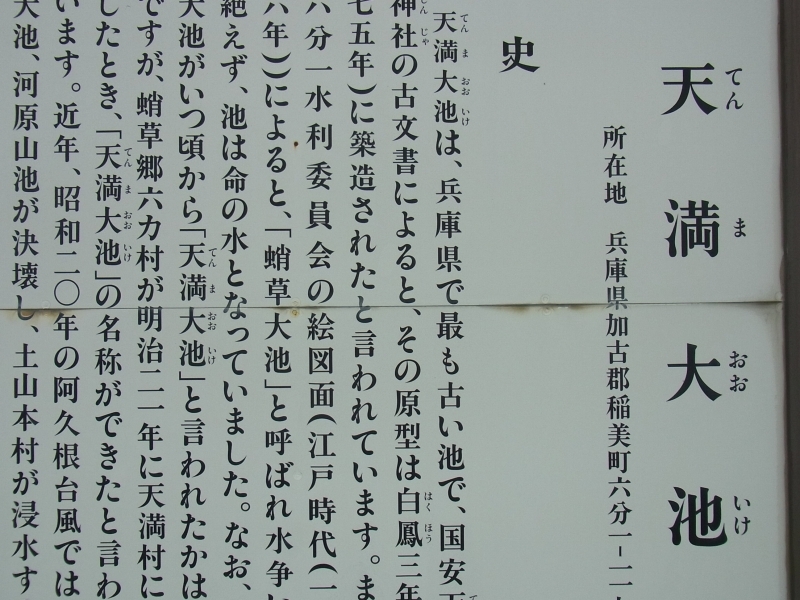 天満大池
てんまおおいけ
所在地 兵庫県加古郡稲美町六分一－一一
史
天満大池は、兵庫県で最も古い池で、国安天
てんまおおいけ
神社の古文書によると、その原型は白鳳三年
じんじゃ
はくほう
七五年)に築造されたと言われています。ま
六分一水利委員会の絵図面(江戸時代(一
六年))によると、「蛸草大池」と呼ばれ水争い
絶えず、池は命の水となっていました。なお、
大池がいつ頃から「天満大池」と言われたかは
てんまおおいけ
ですが、蛸草郷六カ村が明治二一年に天満村に
したとき、「天満大池」の名称ができたと言わ
てんまおおいけ
います。近年、昭和二〇年の阿久根台風では
大池、河原山池が決壊し、土山本村が浸水す